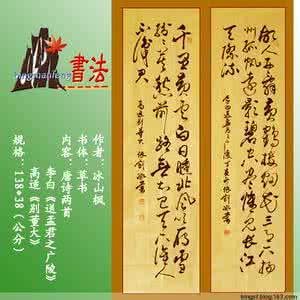 書法
bingshanfeng
作者：冰山枫
书体：草书
内容：唐诗两首
李白《送孟君之广陵》
高适《别董大》
规格：138*38（公分）
故人西辞黄鹤楼烟花三月下扬
州孤帆远影碧空尽惟见长江
天际流
千里黄云白日曛北风吹雁雪
纷纷莫愁前路无知己天下谁人
不识君
高适别董大